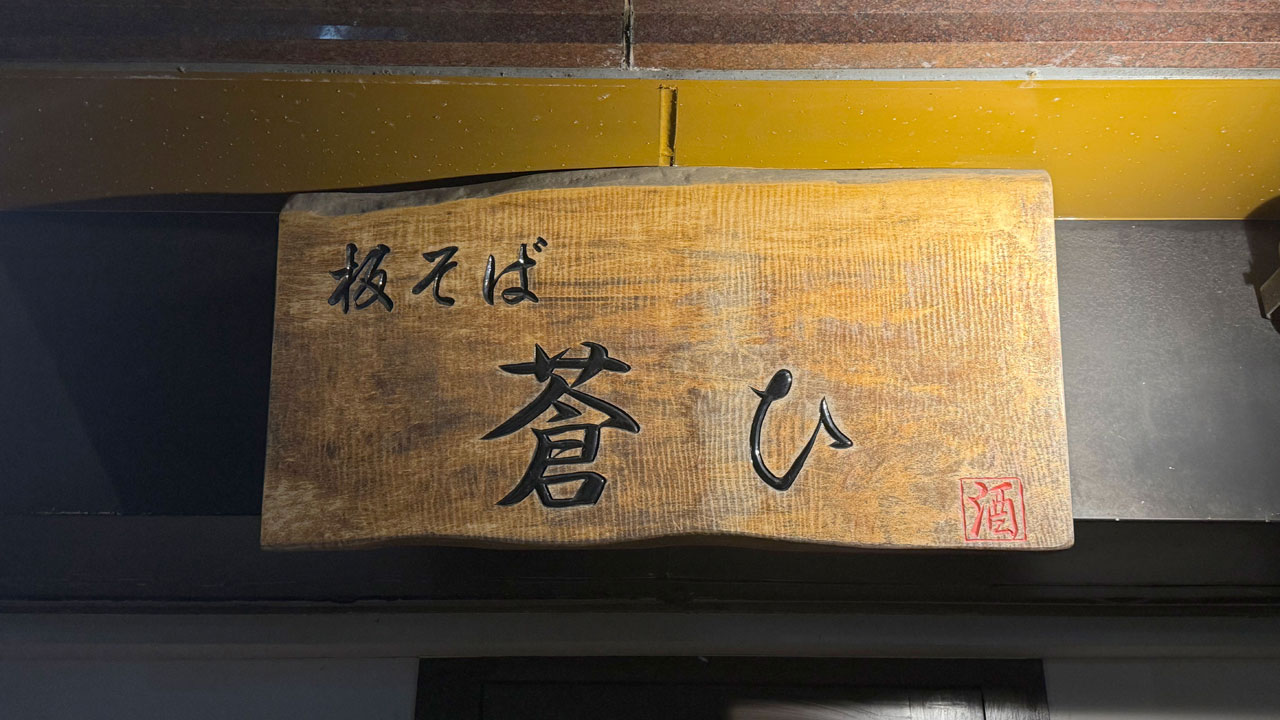 板そば
蒼ひ
酒